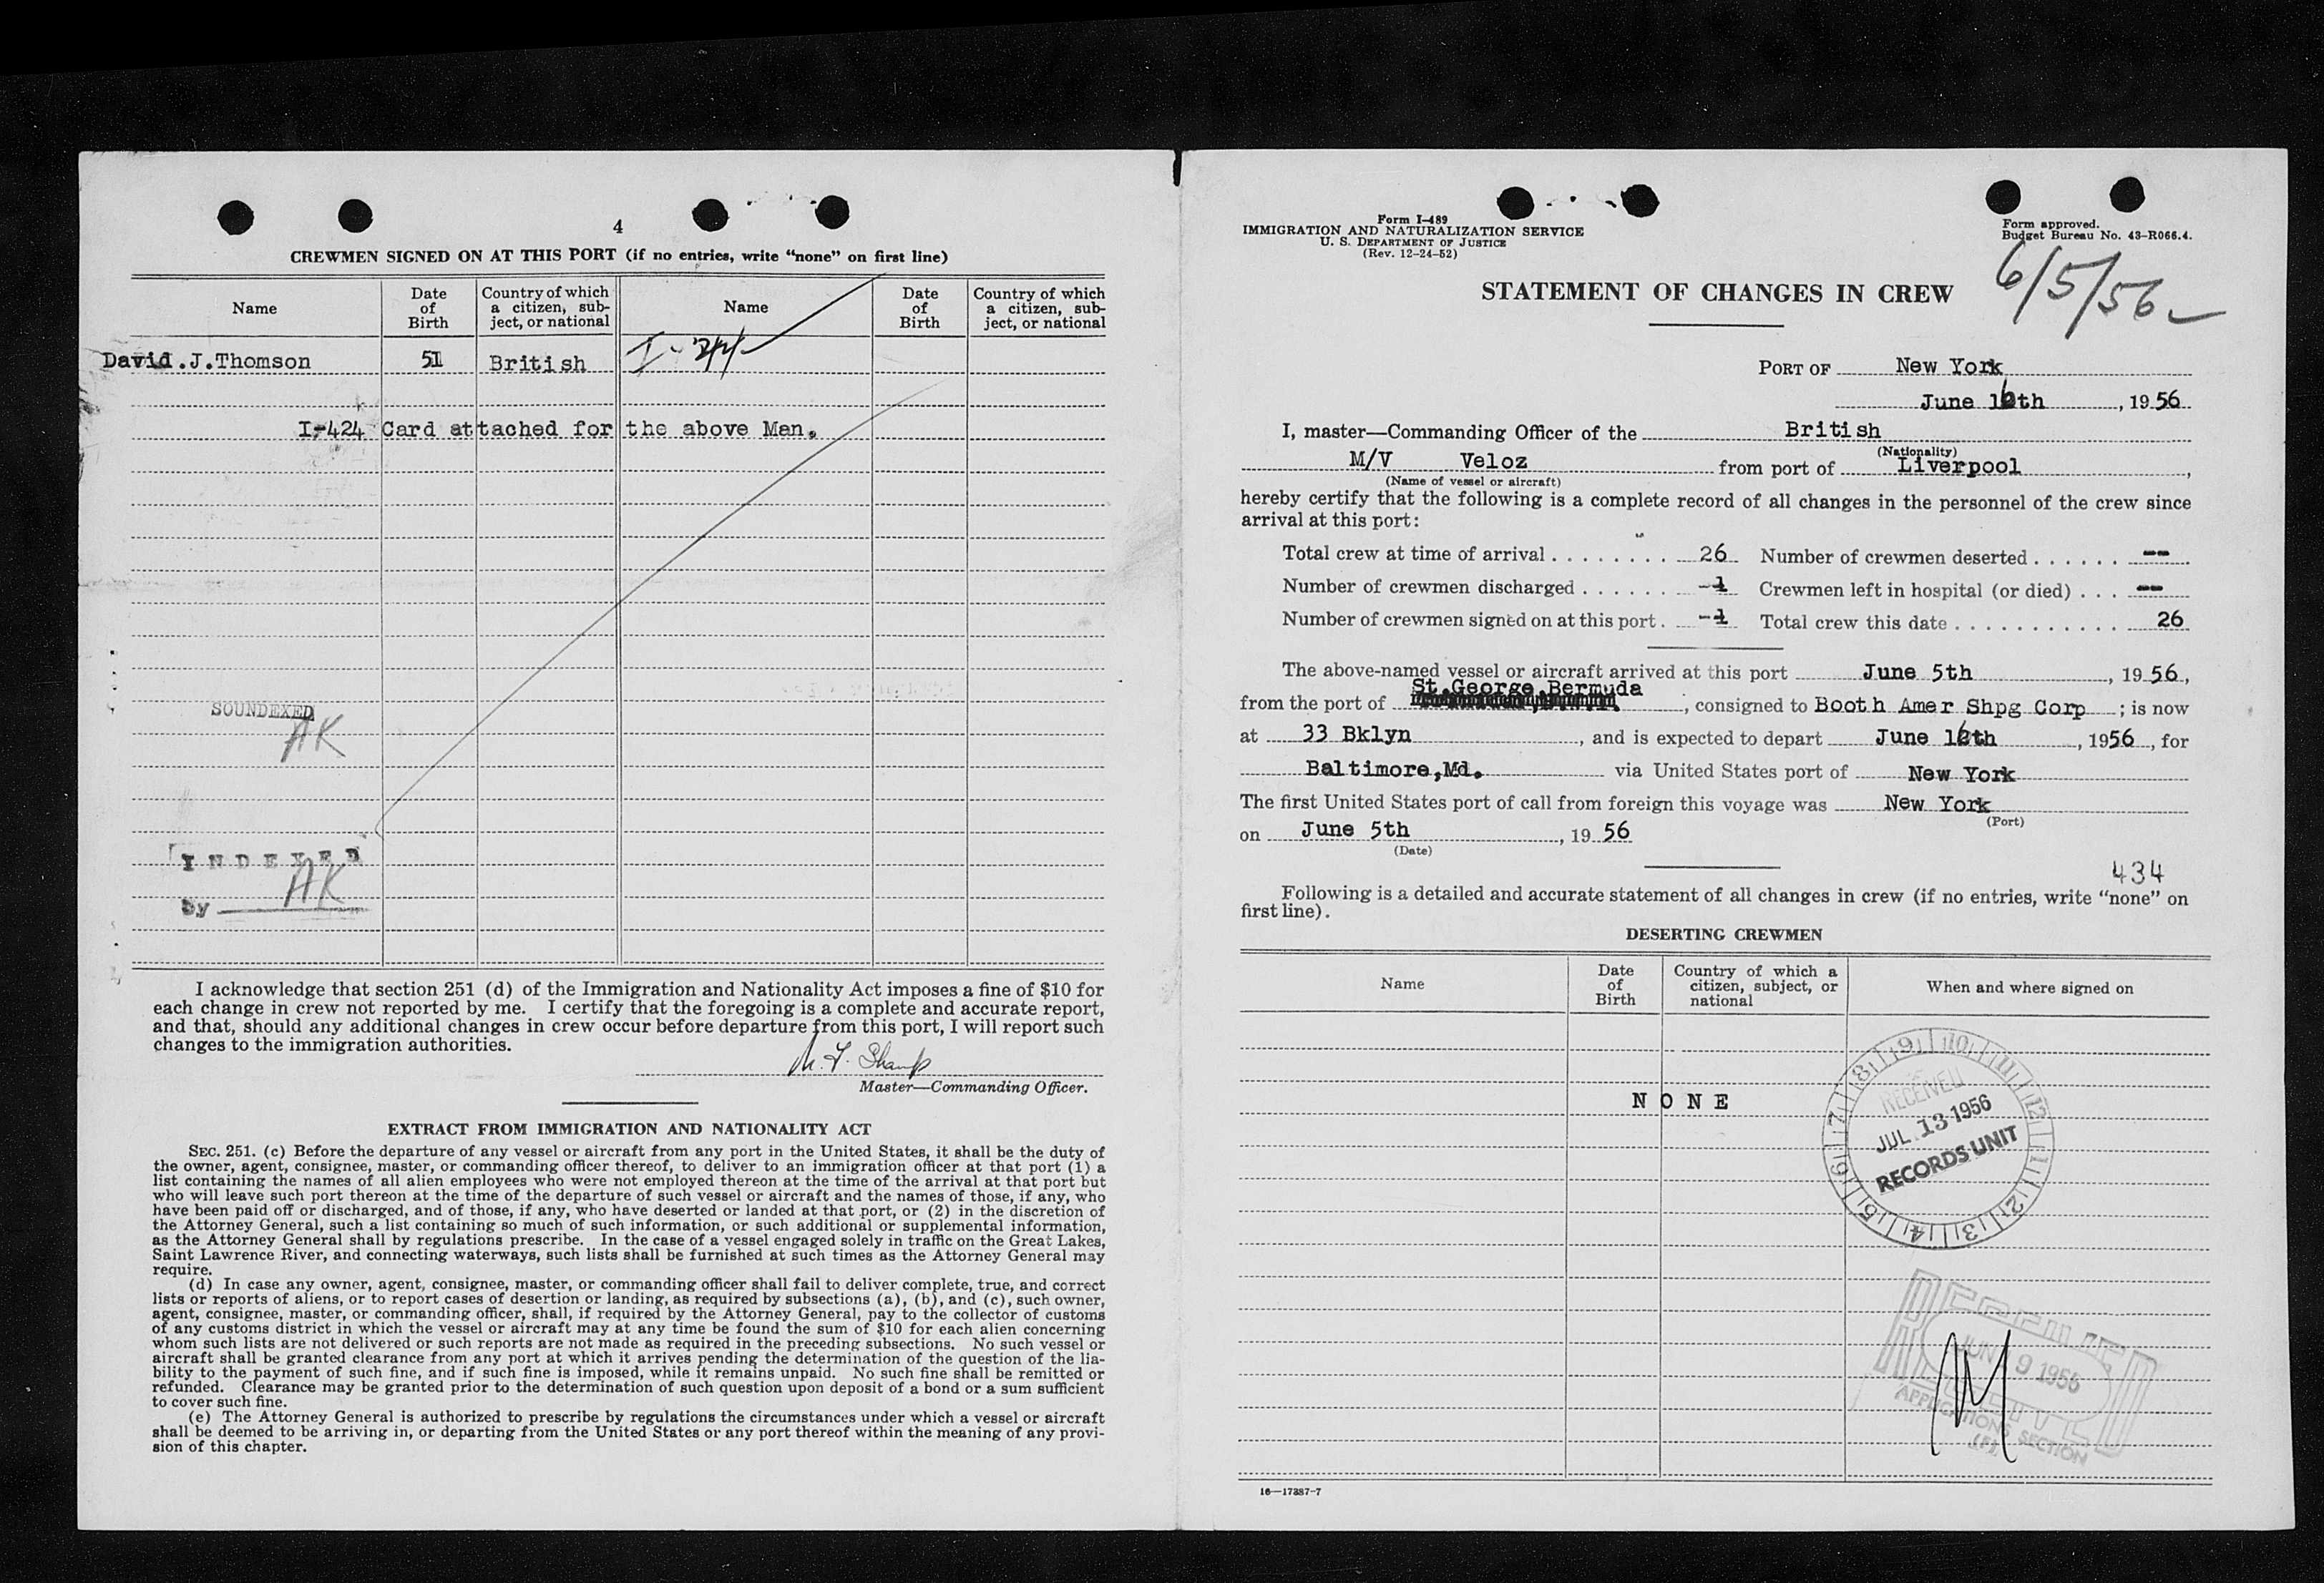 4
CREWMEN SIGNED ON AT THIS PORT (if no entries, write “none” on first line)
Name
Date of Birth
Country of which a citizen, subject, or national
Name
Date of Birth
Country of which a citizen, subject, or national
David.J.Thomson 51 British
I-424 Card attached for the above Man.
SOUNDEXED
AK
INDEXED
AK
by
I acknowledge that section 251 (d) of the Immigration and Nationality Act imposes a fine of $10 for
each change in crew not reported by me. I certify that the foregoing is a complete and accurate report,
and that, should any additional changes in crew occur before departure from this port, I will report such
changes to the immigration authorities.
Master—Commanding Officer.
EXTRACT FROM IMMIGRATION AND NATIONALITY ACT
SEC. 251. (c) Before the departure of any vessel or aircraft from any port in the United States, it shall be the duty of
the owner, agent, consignee, master, or commanding officer thereof, to deliver to an immigration officer at that port (1) a
list containing the names of all alien employees who were not employed thereon at the time of the arrival at that port but
who will leave such port thereon at the time of the departure of such vessel or aircraft and the names of those, if any, who
have been paid off or discharged, and of those, if any, who have deserted or landed at that port, or (2) in the discretion of
the Attorney General, such a list containing so much of such information, or such additional or supplemental information,
as the Attorney General shall by regulations prescribe. In the case of a vessel engaged solely in traffic on the Great Lakes,
Saint Lawrence River, and connecting waterways, such lists shall be furnished at such times as the Attorney General may
require.
(d) In case any owner, agent, consignee, master, or commanding officer shall fail to deliver complete, true, and correct
lists or reports of aliens, or to report cases of desertion or landing, as required by subsections (a), (b), and (c), such owner,
agent, consignee, master, or commanding officer, shall, if required by the Attorney General, pay to the collector of customs
of any customs district in which the vessel or aircraft may at any time be found the sum of $10 for each alien concerning
whom such lists are not delivered or such reports are not made as required in the preceding subsections. No such vessel or
aircraft shall be granted clearance from any port at which it arrives pending the determination of the question of the lia-
bility to the payment of such fine, and if such fine is imposed, while it remains unpaid. No such fine shall be remitted or
refunded. Clearance may be granted prior to the determination of such question upon deposit of a bond or a sum sufficient
to cover such fine.
(e) The Attorney General is authorized to prescribe by regulations the circumstances under which a vessel or aircraft
shall be deemed to be arriving in, or departing from the United States or any port thereof within the meaning of any provi-
sion of this chapter.
Form I-489
IMMIGRATION AND NATURALIZATION SERVICE
U. S. DEPARTMENT OF JUSTICE
(Rev. 12-24-52)
Form approved.
Budget Bureau No. 43-R066.4.
6/5/56
STATEMENT OF CHANGES IN CREW
PORT OF New York
June 16th, 1956
I, master—Commanding Officer of the British
(Nationality)
M/V Veloz from port of Liverpool,
(Name of vessel or aircraft)
hereby certify that the following is a complete record of all changes in the personnel of the crew since
arrival at this port:
Total crew at time of arrival 26 Number of crewmen deserted --
Number of crewmen discharged -1 Crewmen left in hospital (or died) --
Number of crewmen signed on at this port -1 Total crew this date 26
The above-named vessel or aircraft arrived at this port June 5th, 1956,
St.George,Bermuda
from the port of , consigned to Booth Amer Shpg Corp; is now
at 33 Bklyn, and is expected to depart June 16th, 1956, for
Baltimore,Md. via United States port of New York
The first United States port of call from foreign this voyage was New York
(Port)
on June 5th, 1956
(Date)
434
Following is a detailed and accurate statement of all changes in crew (if no entries, write “none” on
first line).
DESERTING CREWMEN
Name
Date of Birth
Country of which a citizen, subject, or national
When and where signed on
NONE
RECEIVED
JUL 13 1956
RECORDS UNIT
JUN 9 1956
APPLICATIONS SECTION
(F)
16—17387-7